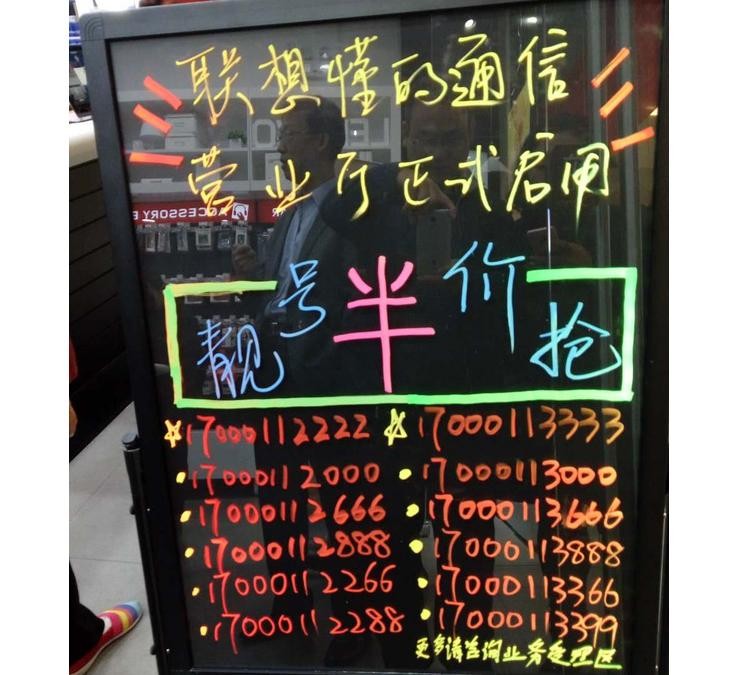 联想懂的通信
营业厅正式启用
靓号半价抢
17000112222 17000113333
17000112000 17000113000
17000112666 17000113666
17000112888 17000113888
17000112266 17000113366
17000112288 17000113399
更多请咨询业务受理区
ACCESSORY